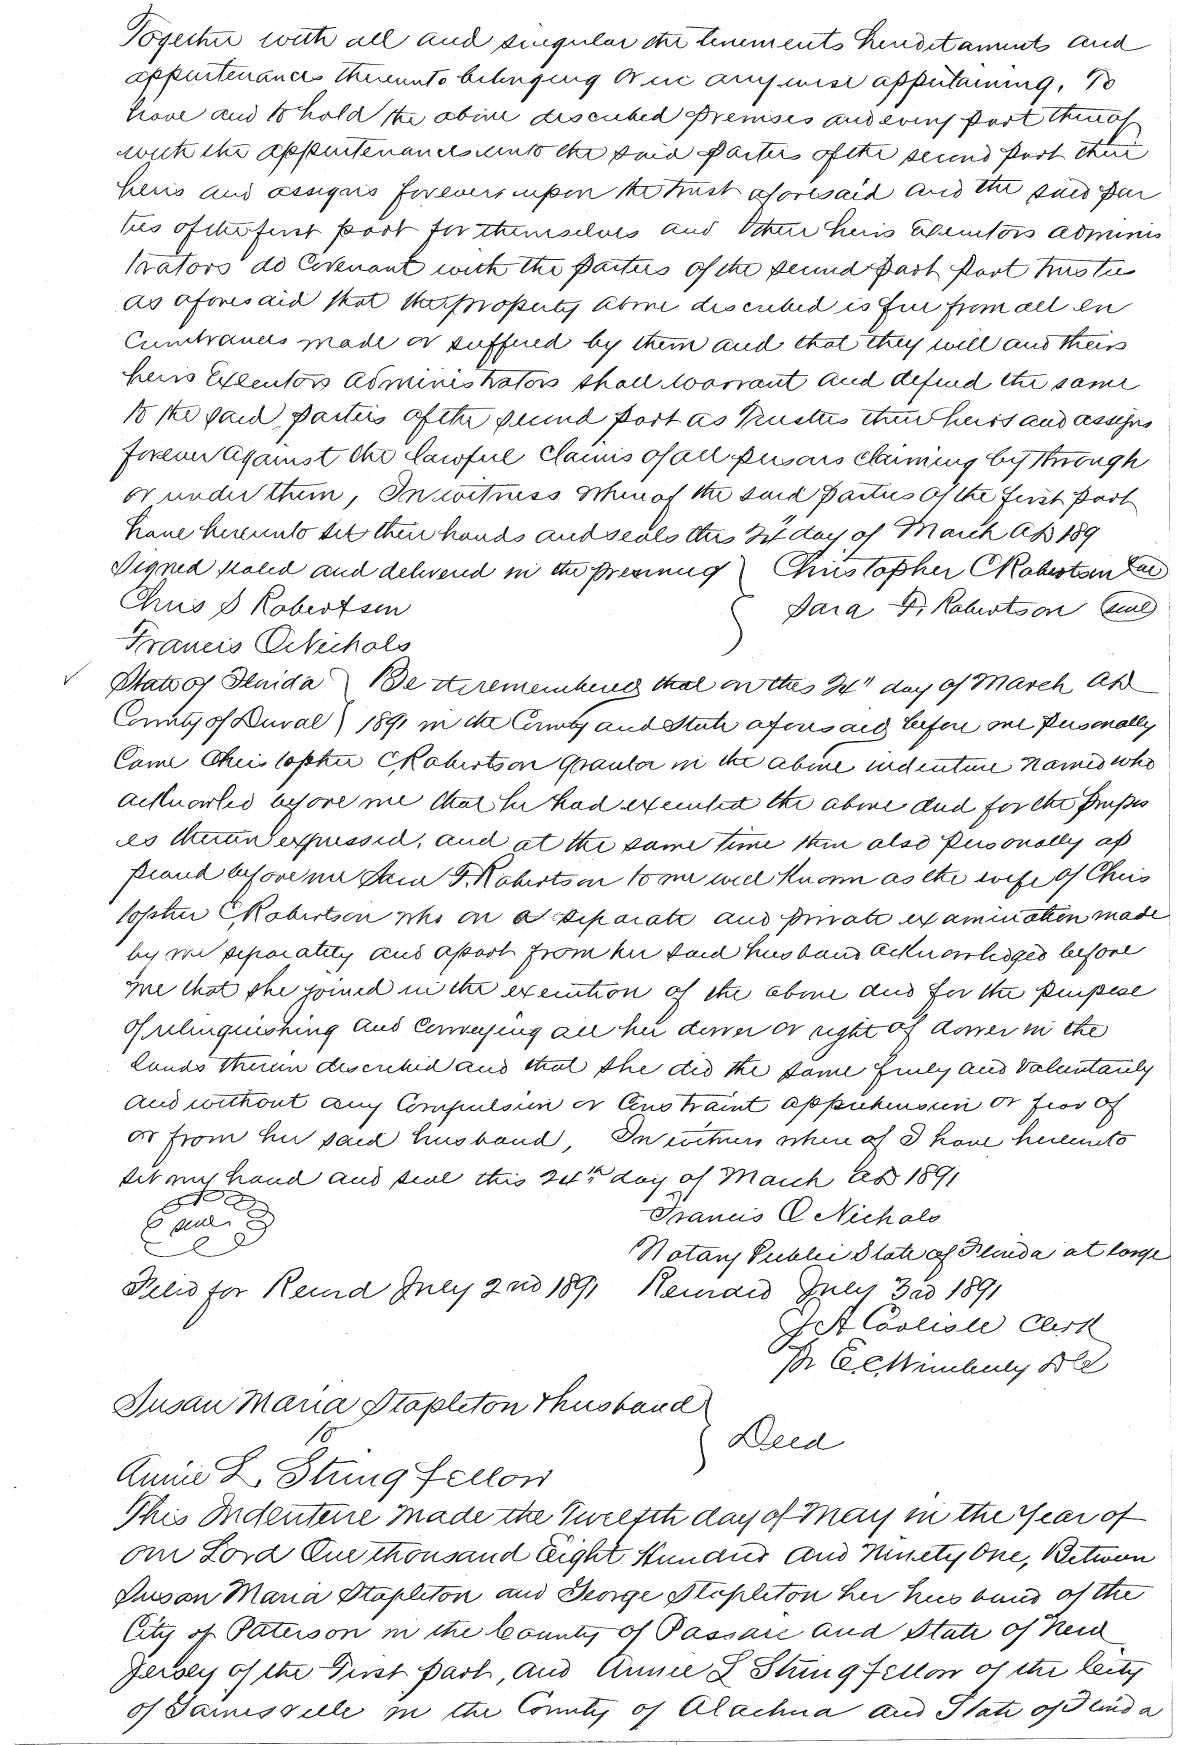 Together with all and singular the tenements hereditaments and
appurtenances thereunto belonging or in anywise appertaining, To
have and to hold the above described premises and every part thereof
with the appurtenances unto the said parties of the second part their
heirs and assigns forever upon the trust aforesaid and the said par
ties of the first part for themselves and their heirs Executors adminis
trators do Covenant with the parties of the second part part trustees
as aforesaid that the property above described is free from all en
Cumbrances made or suffered by them and that they will and theirs
heirs Executors administrators shall warrant and defend the same
to the said parties of the second part as Trustees their heirs and assigns
forever against the lawful claims of all persons claiming by through
or under them, In witness whereof the said parties of the first part
have hereunto set their hands and seals this 24" day of March AD 189
Signed sealed and delivered in the presence } Christopher C Robertson seal
Chris S Robertson } Sara F. Robertson seal
Francis Q Nichols
State of Florida } Be it remembered that on this 24" day of March AD
County of Duval } 1891 in the County and State aforesaid before me personally
Came Christopher C. Robertson grantor in the above indenture named who
acknowled before me that he had executed the above deed for the purpos
es therein expressed, and at the same time then also personally ap
peared before me Sara F. Robertson to me well known as the wife of Chris
topher C. Robertson who on a separate and private examination made
by me separately and apart from her said husband acknowledged before
me that she joined in the execution of the above deed for the purpose
of relinquishing and Conveying all her dower or right of dower in the
lands therein described and that she did the same freely and voluntarily
and without any Compulsion or Constraint apprehension or fear of
or from her said husband, In witness where of I have hereunto
set my hand and seal this 24th day of March AD 1891
seal Francis Q Nichols
Notary Public State of Florida at large
Filed for Record July 2nd 1891 Recorded July 3rd 1891
J A Carlisle Clerk
Pr E.C. Wimberly DC
Susan Maria Stapleton & husband }
to } Deed
Annie L. Stringfellow
This Indenture made the Twelfth day of May in the Year of
our Lord One thousand Eight Hundred and Ninety One, Between
Susan Maria Stapleton and George Stapleton her husband of the
City of Paterson in the County of Passaic and State of New
Jersey of the First part, and Annie L Stringfellow of the City
of Gainesville in the County of Alachua and State of Florida